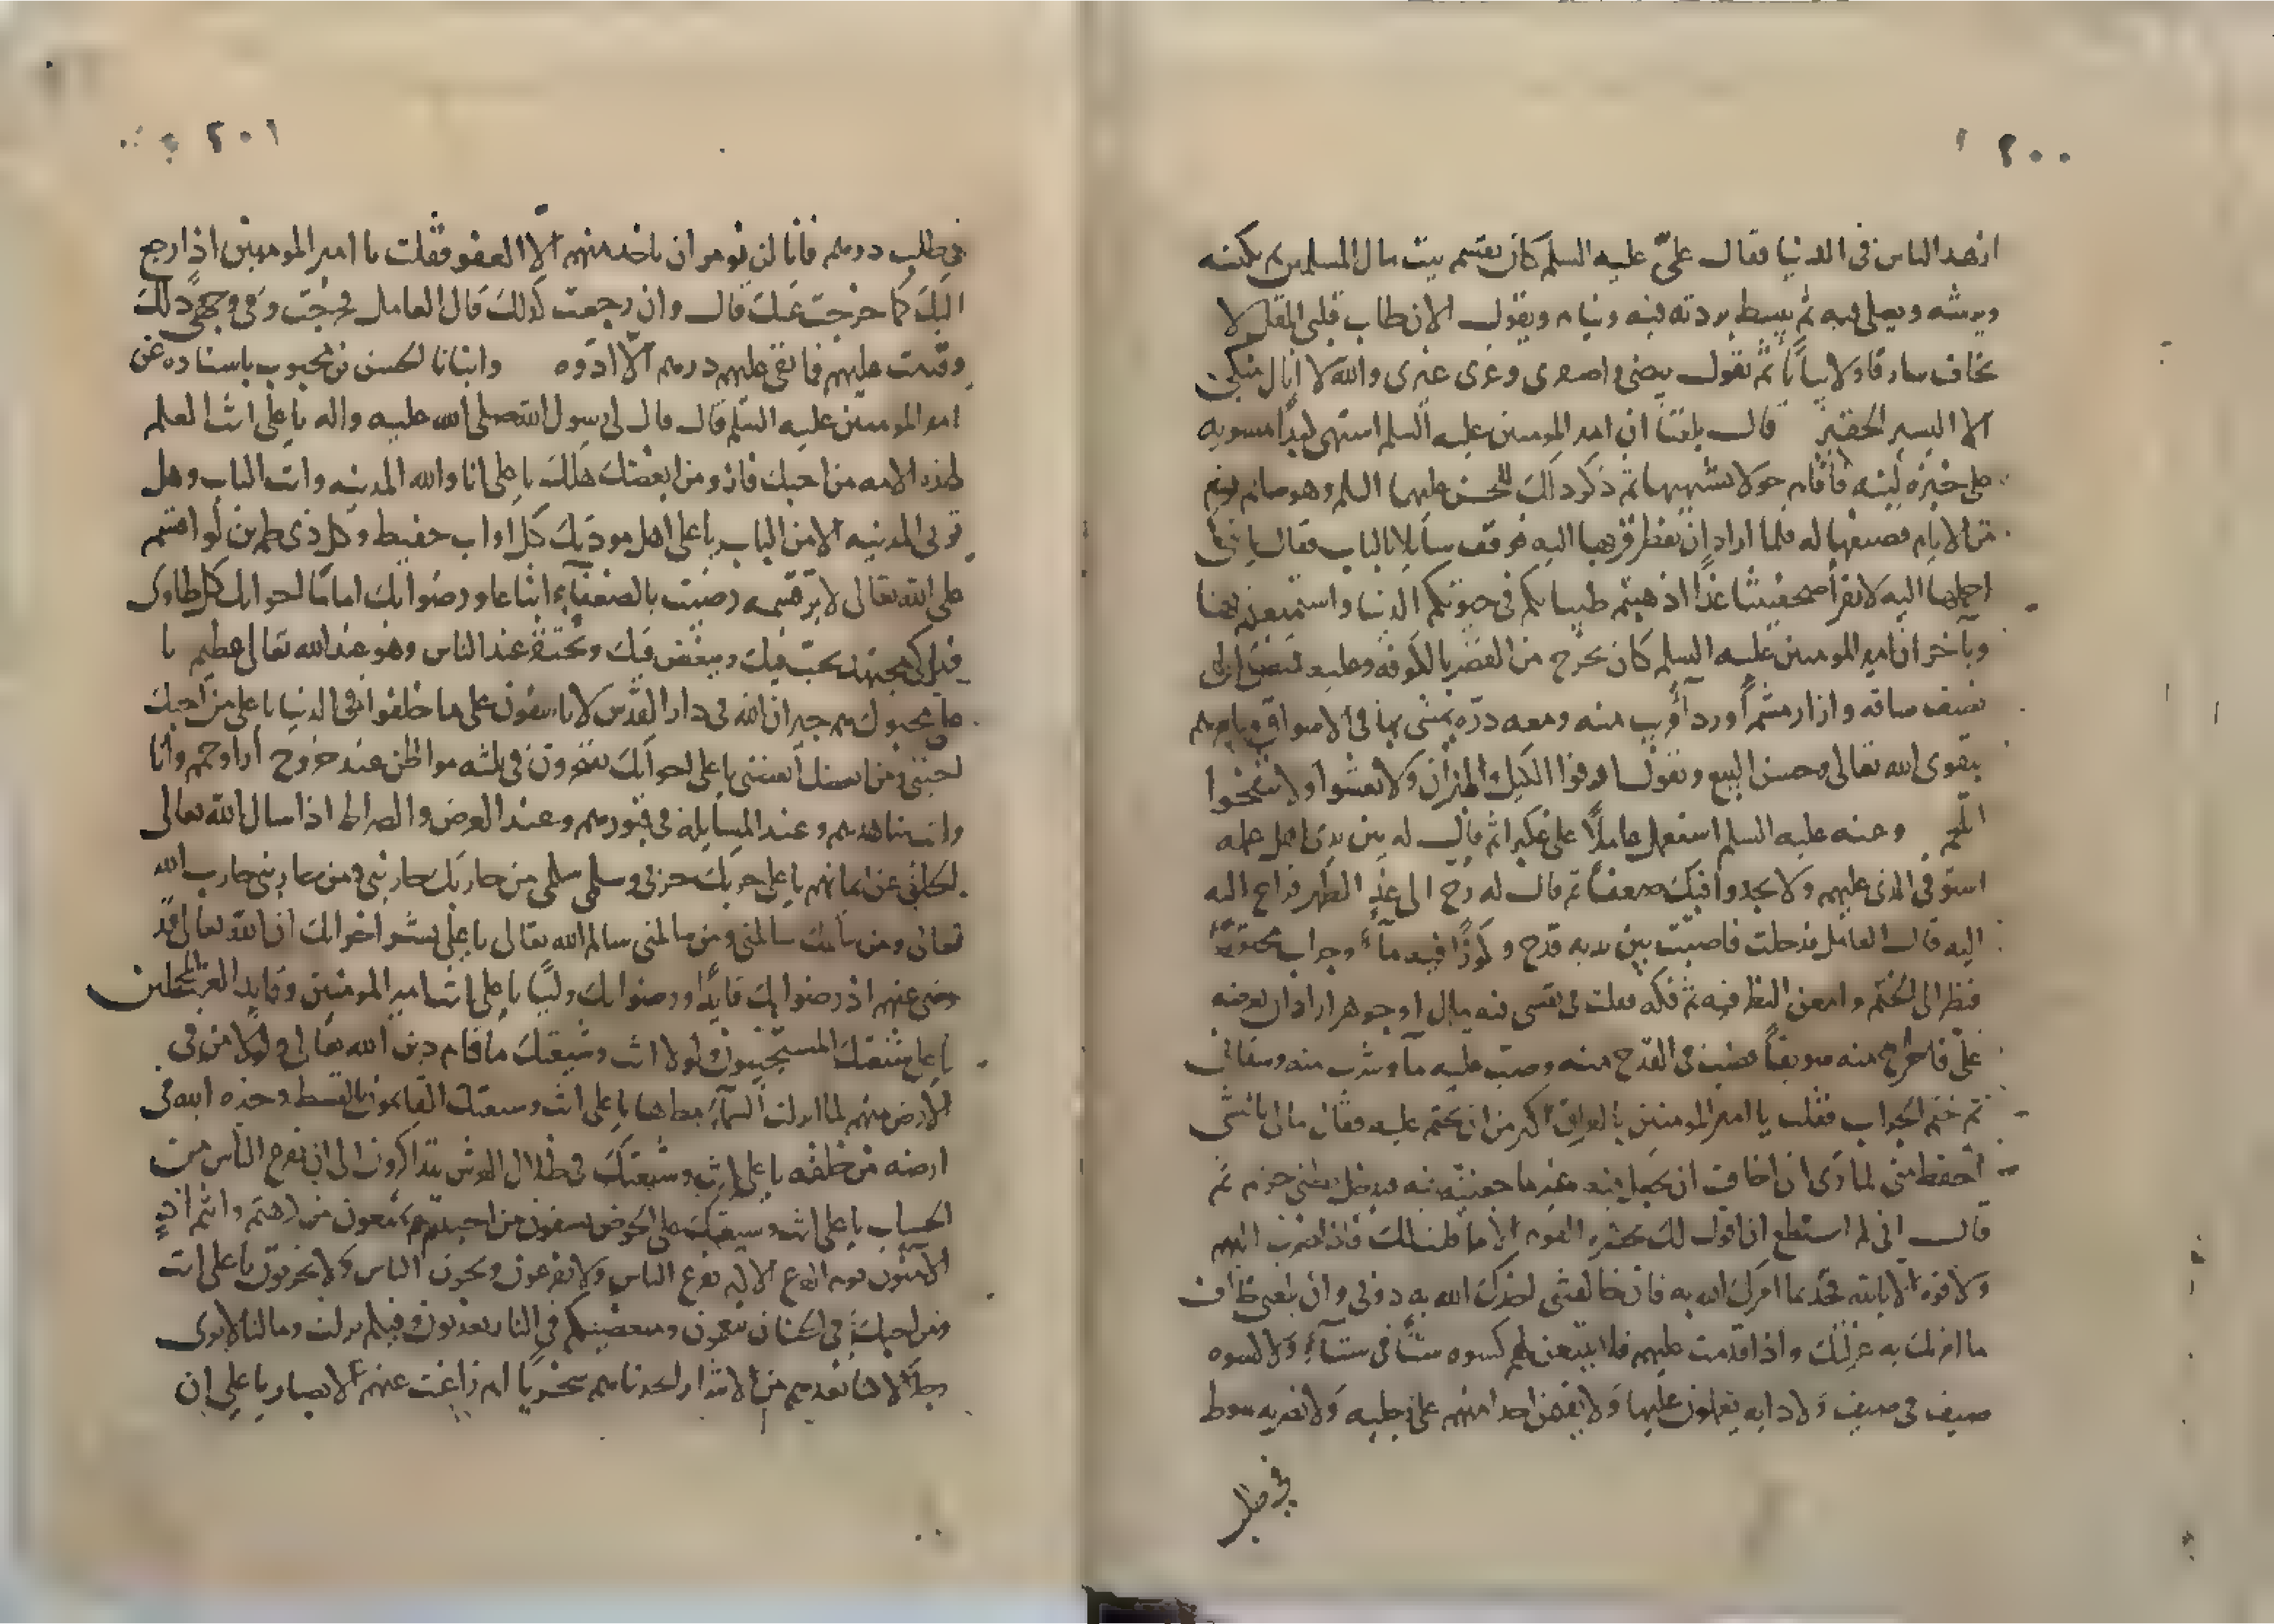 ٢٠٠
ازهد الناس في الدنيا فقال علىّ عليه السلم كان يقسم بيت مال المسلمين ثم يكنسه
ويرشه ويصلى فيه ثم يبسط بردته فيه وينام ويقول الان طاب قلبى المقلل لا
يخاف سارقا ولا بياتا ثم يقول بيضى واصفرى وغرى غيرى والله لا انال منكى
الا اليسير الحقير قال بلغنا ان امير المومنين عليه السلم اشتهى كبدا مشويه
على خبزه لينه فاقام حولا يشتهيها ثم ذكر ذلك للحسن عليهما السلم وهو صايم يوم
من الايام فصنعها له فلما اراد ان يفطر قربها اليه فوقف سايلا بالباب فقال يا بنى
احملها اليه لا نقرأ صحفيتنا غدا اذهبتم طيباتكم في حيوتكم الدنيا واستمتعتم بها
وبآخر ان امير المومنين عليه السلم كان يخرج من القصر بالكوفه وعليه قميص الى
نصف ساقه وازار مشمرا وردآ قريب منه ومعه دره يمشى بها في الاسواق ويامرهم
بتقوى الله تعالى وحسن البيع ويقول اوفوا الكيل والميزان ولا تغشوا ولا تنفخوا
اللحم وعنه عليه السلم استعمل عاملا على عكبرا ثم قال له بين يدى اهل عمله
استوفى الذى عليهم ولا يجدوا فيك ضعفا ثم قال له رح الى عند الظهر فراح اليه
اليه قال العامل فدخلت فاصبت بين يديه قدح وكوزا فيه مآء وجراب مختوم
فنظر الى الختم وامعن النظر فيه ثم فكه فقلت في نفسى فيه مال او جوهر اراد ان يعرضه
علىّ فاخرج منه سويقا فصب في القدح منه وصب عليه مآ وشرب منه وسقانى
ثم ختم الجراب فقلت يا امير المومنين بالعراق اكبر من ان يختم عليه فقال مالى باشى
احفظ منى لما ترى انى اخاف ان يجعل فيه غير ما جعلته فيه فيدخل بطنى حرام ثم
قال انى لم استطع ان اقول لك بحضره القوم الا ما قلت لك فاذا صرت اليهم
ولا قوه الا بالله فخذ بما امرك الله به فان خالفتنى اخذك الله به دونى وان بلغنى خلاف
ما امرتك به عزلتك واذا قدمت عليهم فلا تبيعن لهم كسوه شتآ في شتآء ولا كسوه
صيف في صيف ولا دابه يعملون عليها ولا تقيمن احدا منهم على رجليه ولا تضربه سوط
في طلب
٢٠١
في طلب درهم فانا لن نومر ان ناخذ منهم الا العفو فقلت يا امير المومنين اذا ارجع
اليك كما خرجت عنك قال وان رجعت كذلك قال العامل فخرجت وفي وجهى ذلك
وقدمت عليهم فما بقى عليهم درهم الا ادوه وانبانا الحسن بن محبوب باسناده عن
امير المومنين عليه السلم قال قال لى رسول الله صلى الله عليه واله يا على انت العلم
لهذه الامه من احبك فاز ومن ابغضك هلك يا على انا والله المدينه وانت الباب وهل
توتى المدينه الا من الباب يا على اهل مودتك كل اواب حفيظ وكل ذى طمرين لو اقسم
على الله تعالى لابر قسمه رضيت بالضعفآء اتباعا ورضوا بك اماما اخوانك كل طاوى
مجتهد يحب فيك ويبغض فيك ومحتقر عند الناس وهو عند الله تعالى عظيم يا
على محبوك هم جيران الله في دار القدس لا ياسفون على ما خلفوا في الدنيا يا على من احبك
احبنى ومن ابغضك ابغضنى يا على اخوانك يفرحون في ثلثه مواطن عند خروج ارواحهم وانا
وانت شاهدهم وعند المسآيله في قبورهم وعند العرض والصراط اذا سال الله تعالى
الخلق عن ايمانهم يا على حربك حربى وسلمك سلمى من حاربك حاربنى ومن حاربنى حارب الله
تعالى ومن سالمك سالمنى ومن سالمنى سالم الله تعالى يا على بشر اخوانك ان الله تعالى قد
رضى عنهم اذ رضوا بك قآيدا ورضوا بك وليا يا على انت امير المومنين وقايد الغر المحجلين
يا على شيعتك المستجيبون ولولا انت وشيعتك ما قام دين الله تعالى ولولا من في
الارض منهم لما انزلت السمآء قطرها يا على انت وشيعتك القايمون بالقسط وخيره الله في
ارضه من خلقه يا على انت وشيعتك في ظلال العرش يتذاكرون الى ان يفرغ الناس من
الحساب يا على انت وشيعتك على الحوض تسقون من احببتم وتمنعون من كرهتم وانتم اذ
الامنون يوم الفزع الاكبر يفزع الناس ولا تفزعون ويحزن الناس ولا تحزنون يا على انت
ومن احبك في الجنان تنعمون ومبغضيكم في النار يعذبون وفيكم نزلت وما لنا لا نرى
رجالا كنا نعدهم من الاشرار اتخذناهم سخريا ام زاغت عنهم الابصار يا على ان